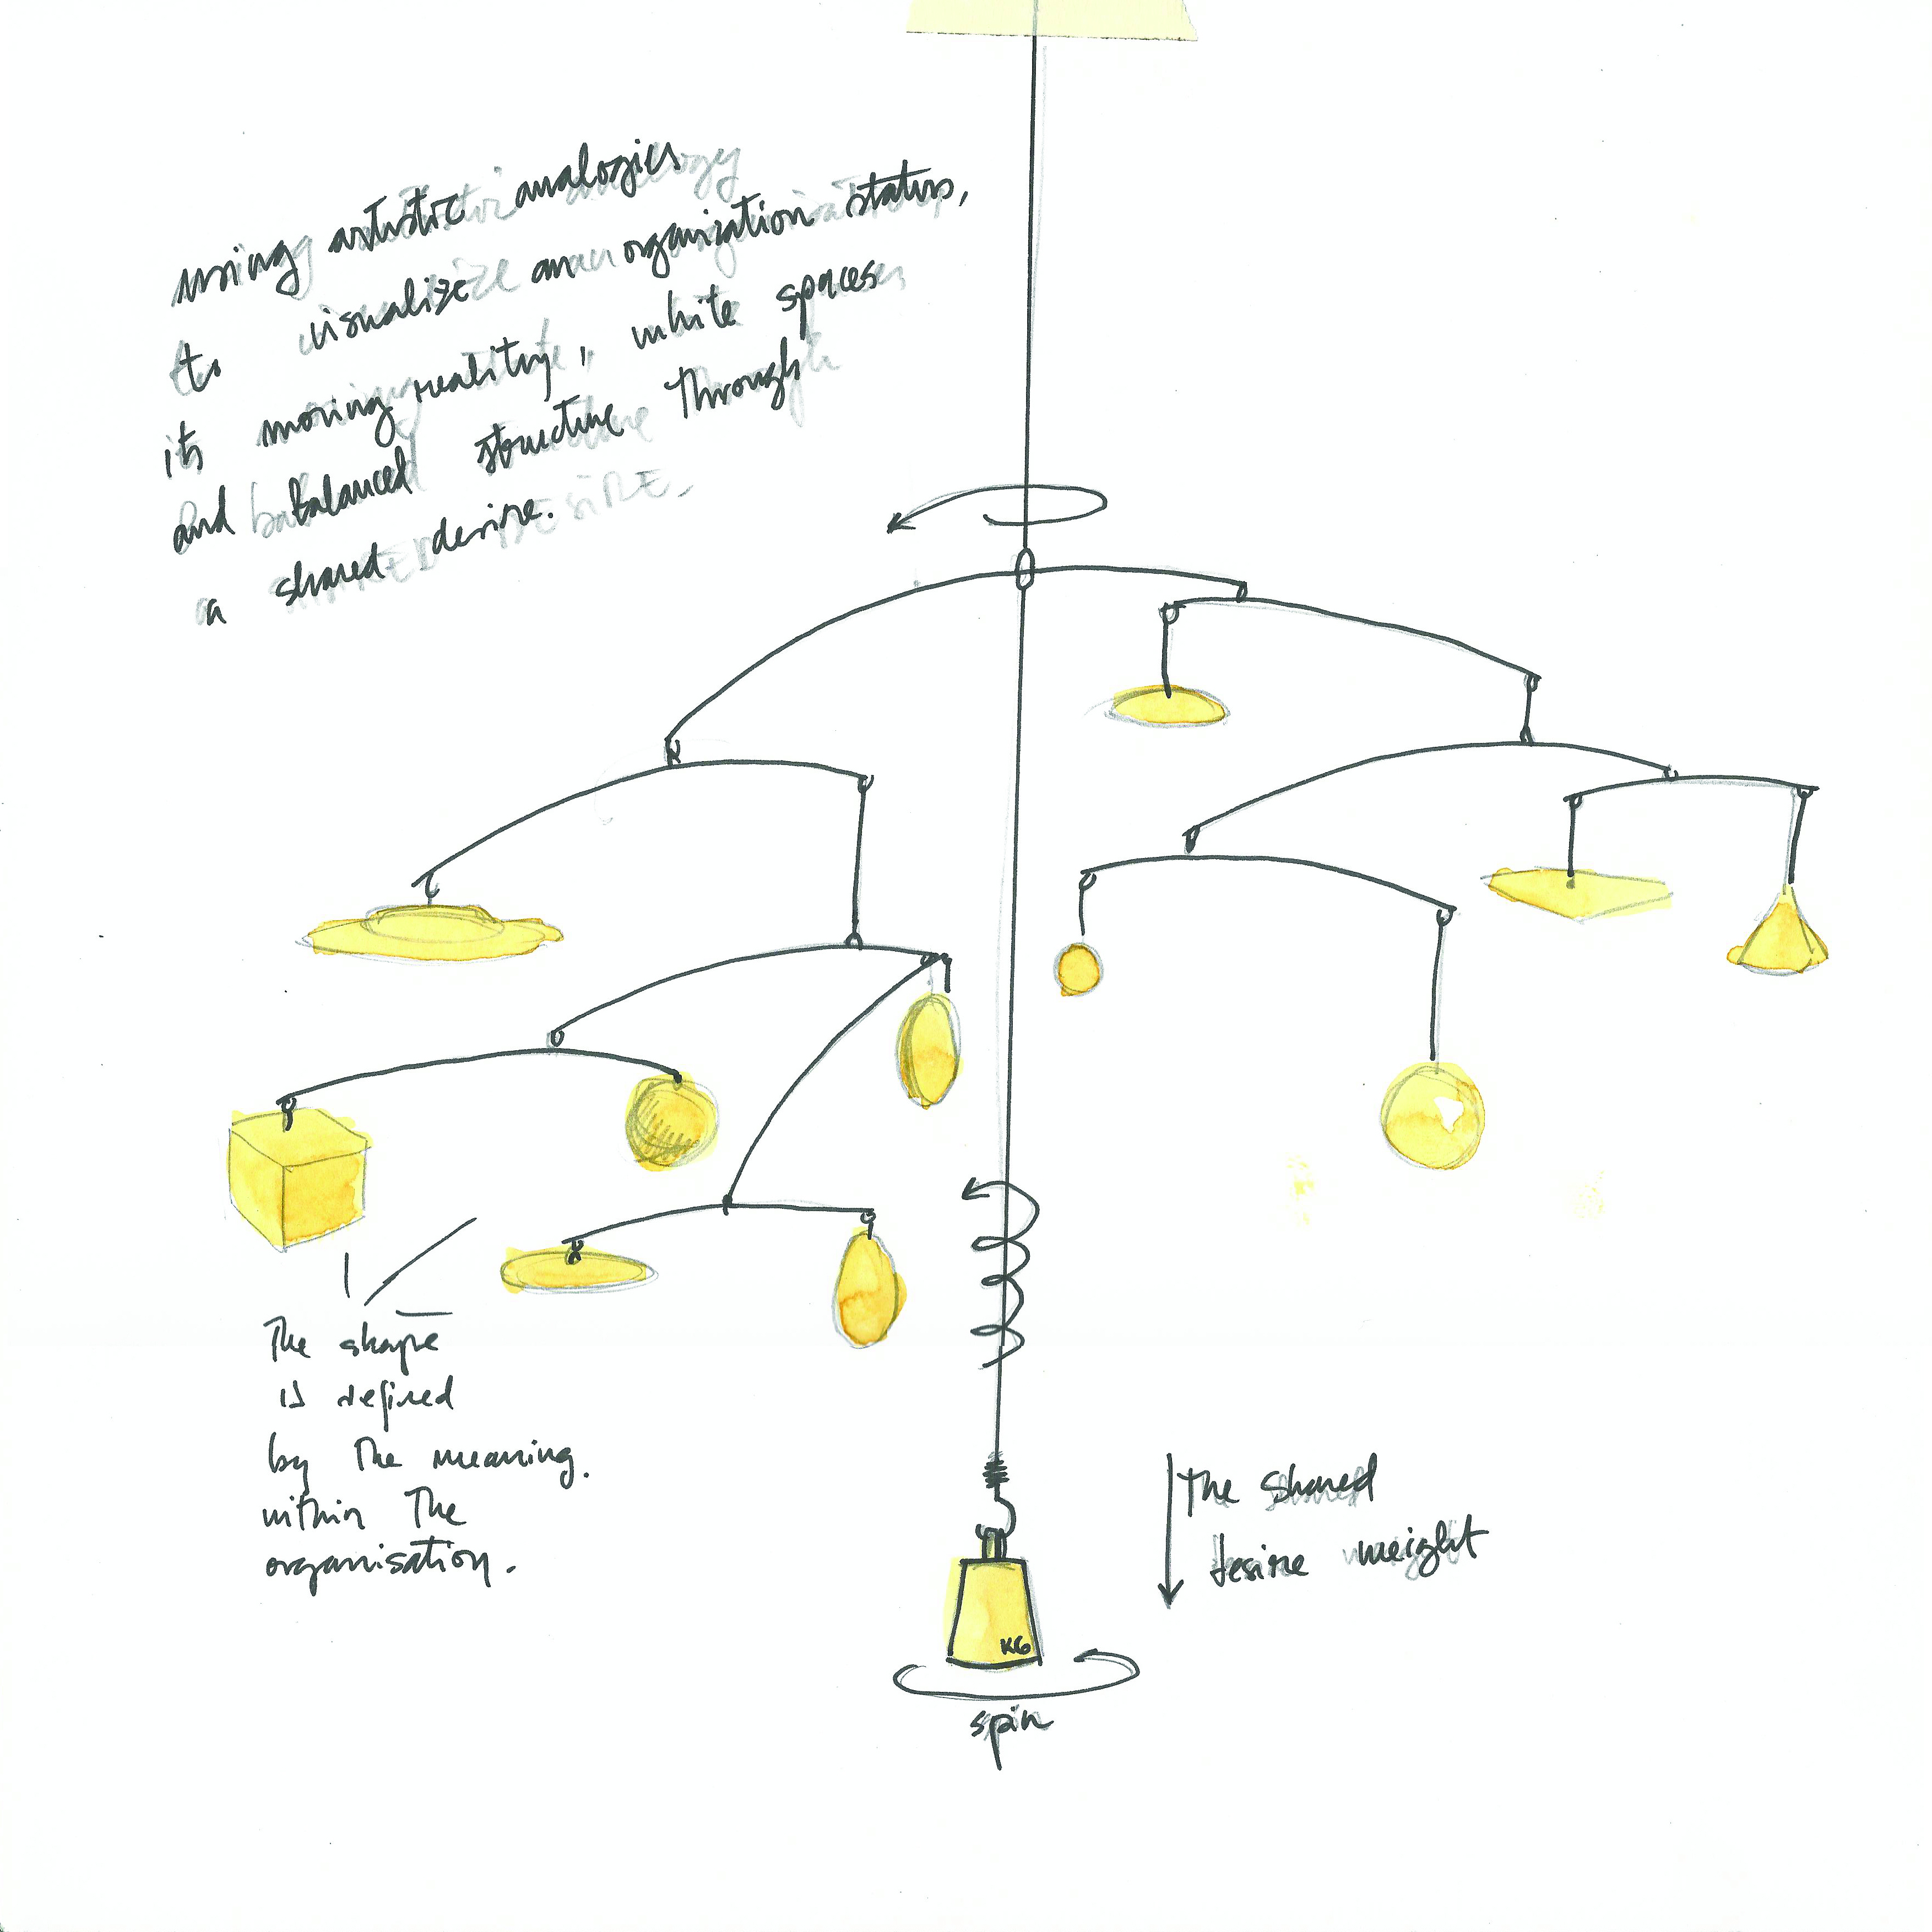 using artistic analogies
to visualize an organization status,
its moving reality, white spaces
and balanced structure through
a shared desire.
The shape
is defined
by the meaning.
within the
organisation.
The shared
desire weight
KG
spin